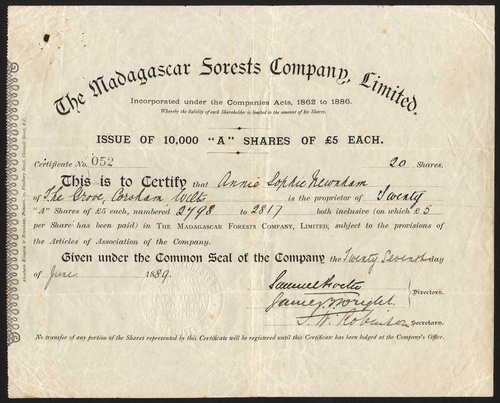 The Madagascar Forests Company, Limited.
Incorporated under the Companies Acts, 1862 to 1886.
Whereby the liability of each Shareholder is limited to the amount of his Shares.
ISSUE OF 10,000 "A" SHARES OF £5 EACH.
Certificate No. 052 20 Shares.
This is to Certify that Annie Sophie Newnham
of The Grove, Corsham Wilts is the proprietor of Twenty
"A" Shares of £5 each, numbered 2798 to 2817 both inclusive (on which £5
per Share has been paid) in THE MADAGASCAR FORESTS COMPANY, LIMITED, subject to the provisions of
the Articles of Association of the Company.
Given under the Common Seal of the Company the Twenty Seventh day
of June 1889.
Samuel
James Wright. Directors.
Robinson Secretary.
No transfer of any portion of the Shares represented by this Certificate will be registered until this Certificate has been lodged at the Company's Office.